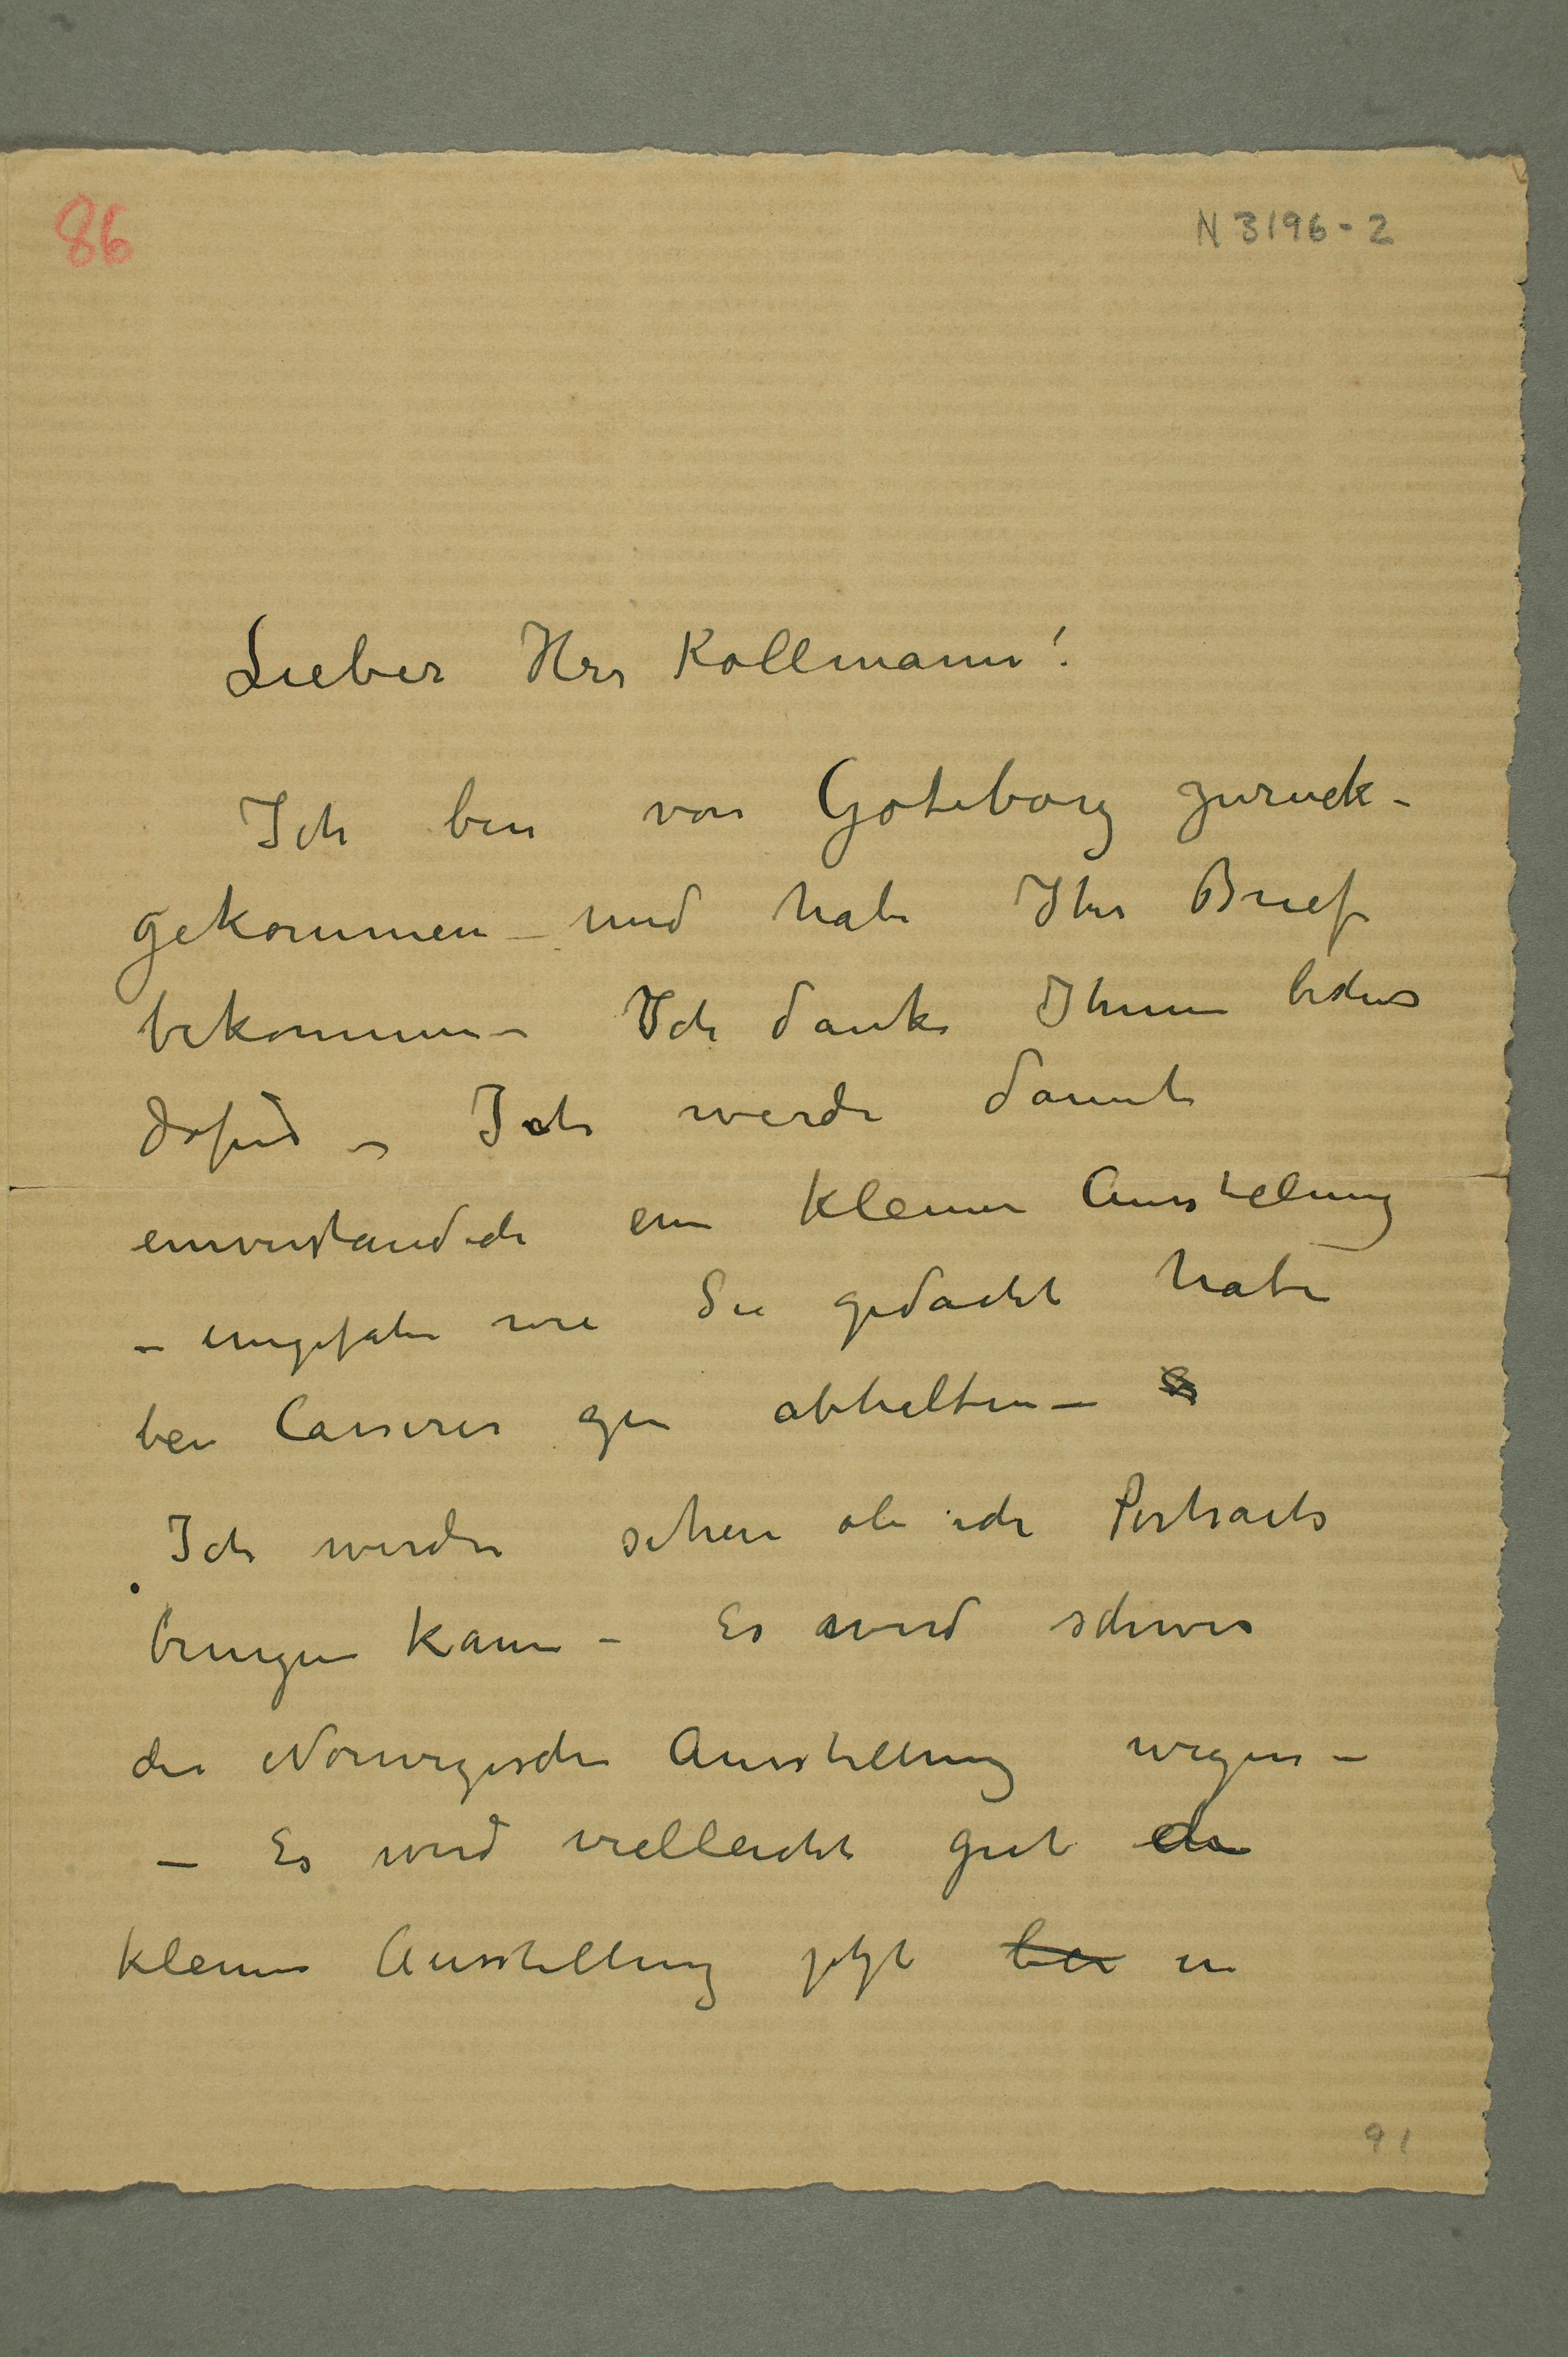 86
N 3196-2
Lieber Herr Kollmann!
Ich bin von Goteborg zuruck-
gekommen – und habe Ihr Brief
bekommen – Ich danke Ihnen bestens
dafur – Ich werde damit
einverstanden ein kleine Ausstelung
– ungefahr wie Sie gedacht habe
bei Cassirer abhalten –
Ich werde sehen ob ich Portraits
bringen kann – Es wird schwer
die Norwegische Ausstellung wegen –
– Es wird vielleicht gut die
kleine Ausstellung jetzt bei in
91